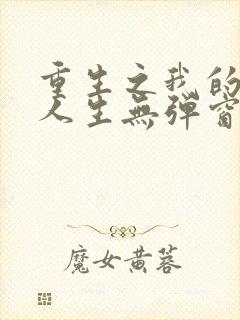 重生之我的
人生無彈窗
魔女黄蓉